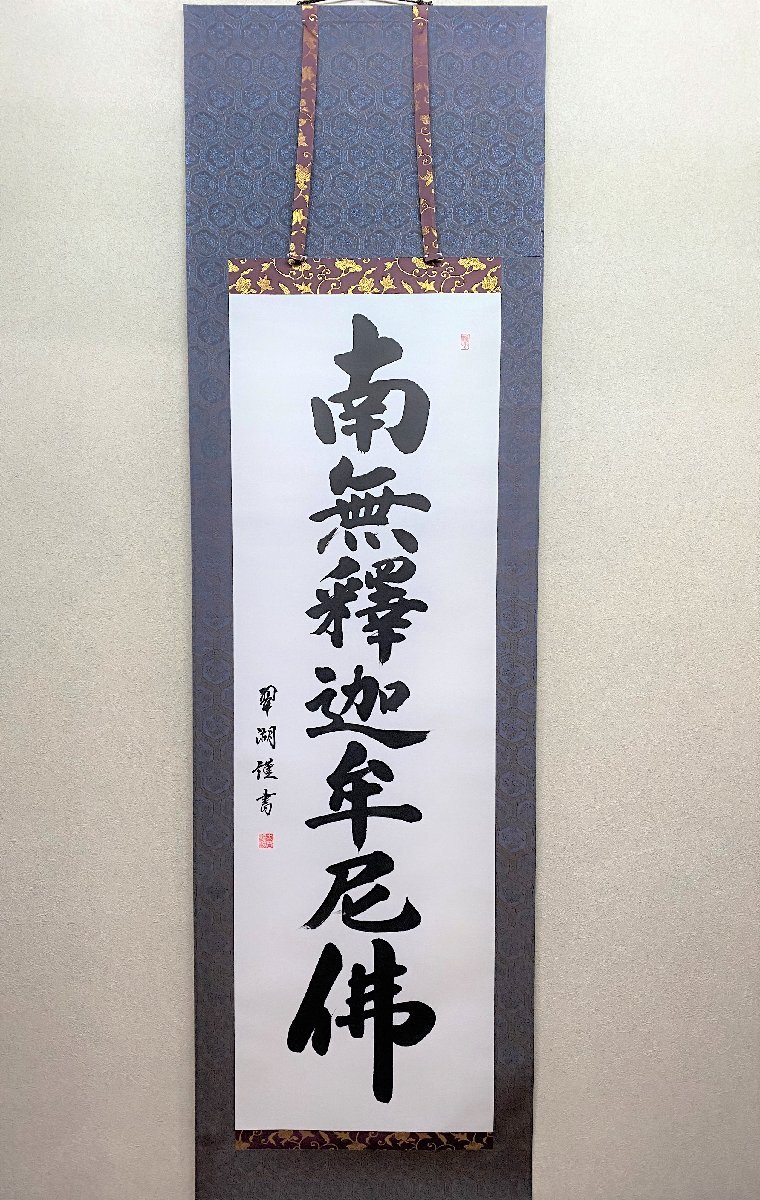 南無釋迦牟尼佛
翠湖謹書